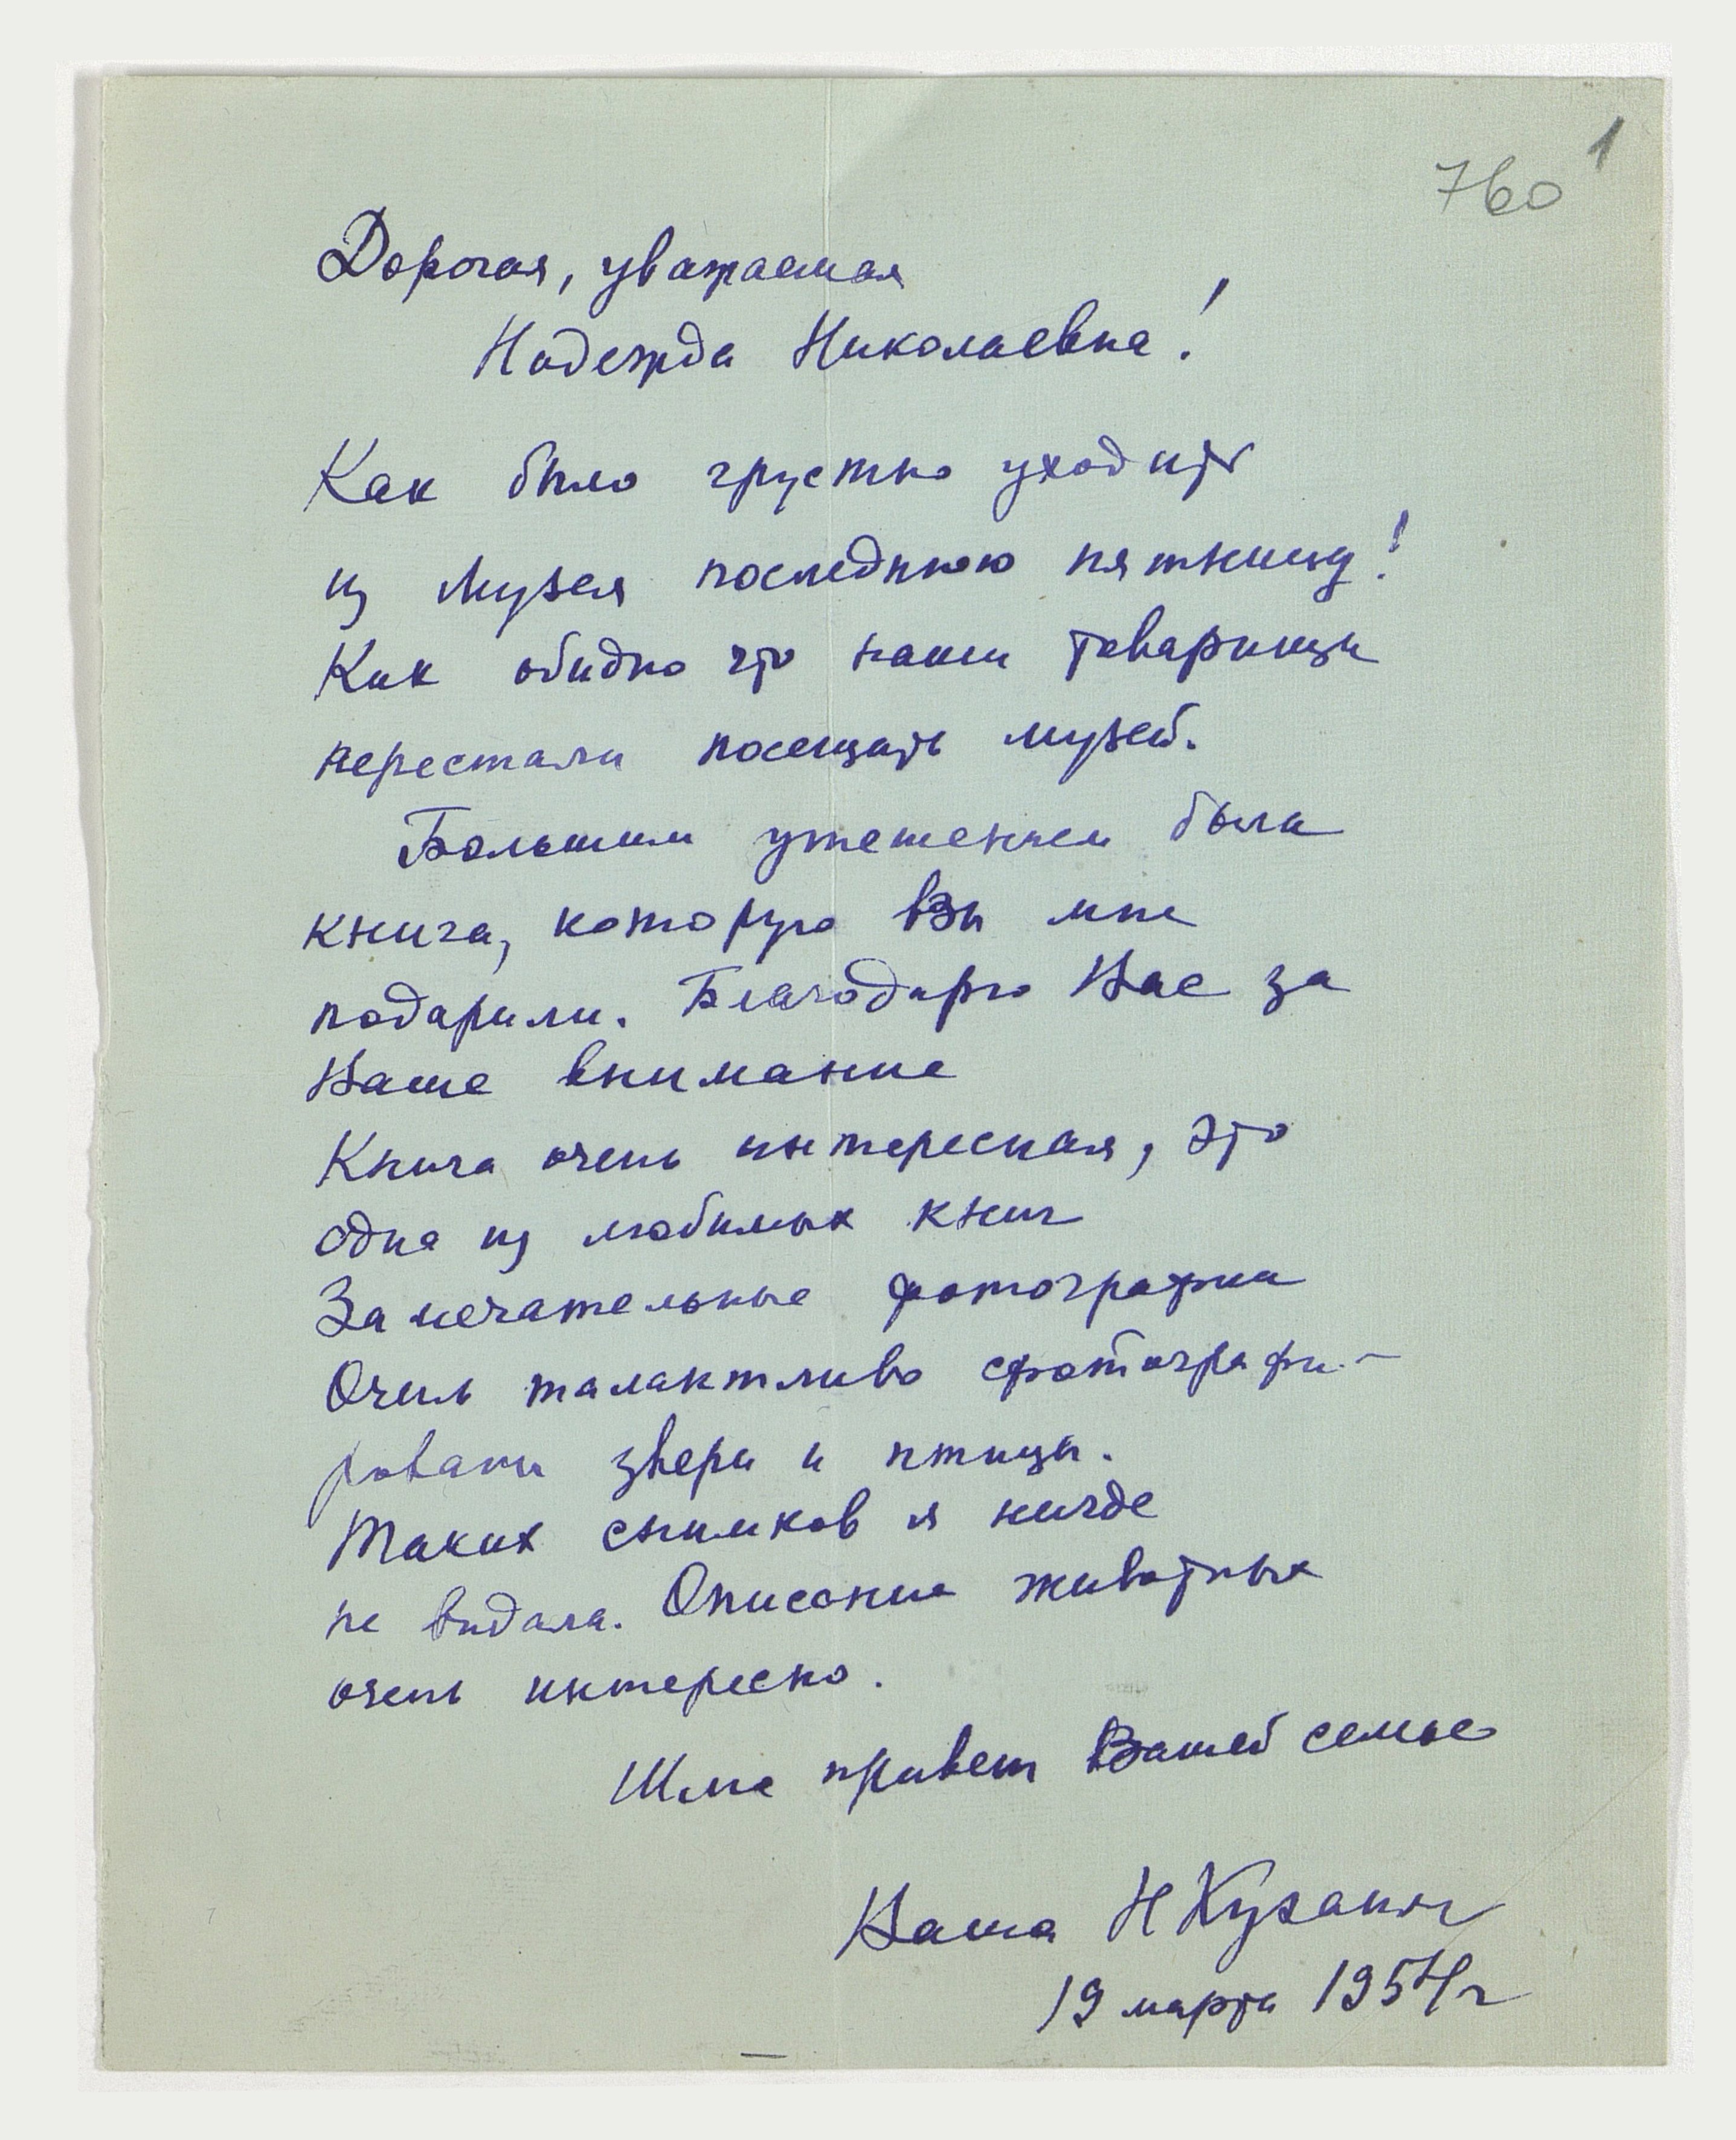 1
760
Дорогая, уважаемая
Надежда Николаевна!
Как было грустно уходить
из Музея последнюю пятницу!
Как обидно что наши товарищи
перестали посещать музей.
Большим утешением была
книга, которую Вы мне
подарили. Благодарю Вас за
Ваше внимание
Книга очень интересная, это
одна из любимых книг
Замечательные фотографии
Очень талантливо сфотографи-
рованы звери и птицы.
Таких снимков я нигде
не видала. Описание животных
очень интересно.
Шлю привет Вашей семье
Ваша Н
19 марта 1954 г